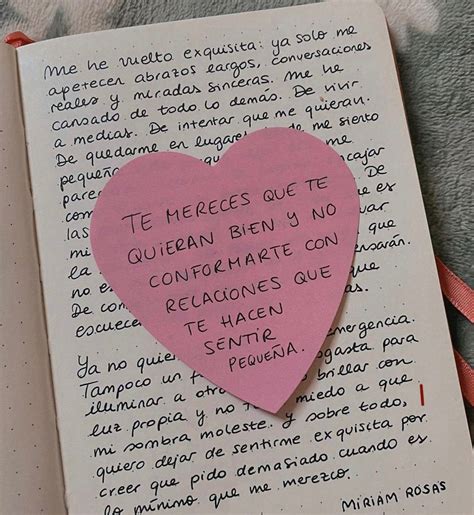 Me he vuelto exquisita: ya solo me
apetecen abrazos largos, conversaciones
reales y miradas sinceras. Me he
cansado de todo lo demás. De vivir
a medias. De intentar que me quieran.
De quedarme en lugares me siento
pequeña encajar
pare
com es
las var
mi
la ensarán.
no e que
De con as.
escuece
TE MERECES QUE TE
QUIERAN BIEN Y NO
CONFORMARTE CON
RELACIONES QUE
TE HACEN
SENTIR
PEQUEÑA.
Ya no quier mergencia.
Tampoco un f ogasta para
iluminar a otro brillar con
luz propia y no t miedo a que
mi sombra moleste. Y sobre todo,
quiero dejar de sentirme exquisita por
creer que pido demasiado cuando es
lo mínimo que me merezco.
MIRIAM ROSAS